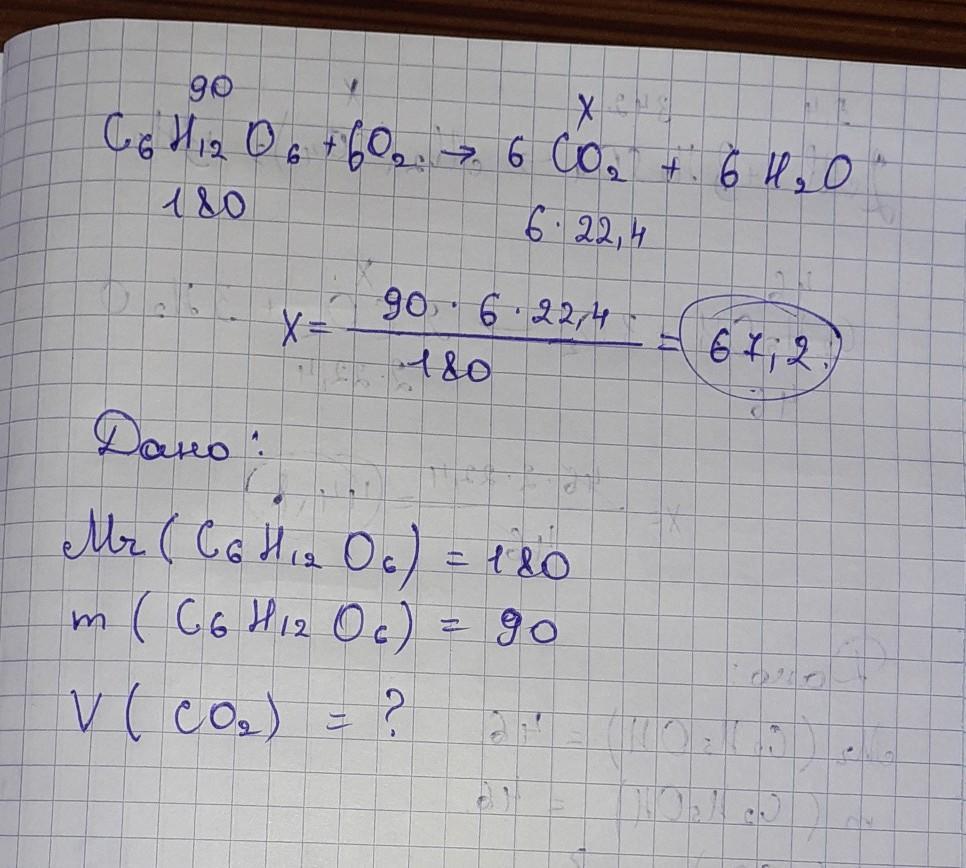 90 X
C₆H₁₂O₆ + 6O₂ → 6CO₂ + 6H₂O
180 6·22,4
X = 90·6·22,4 / 180 = 67,2.
Дано:
Mr(C₆H₁₂O₆) = 180
m(C₆H₁₂O₆) = 90
V(CO₂) = ?